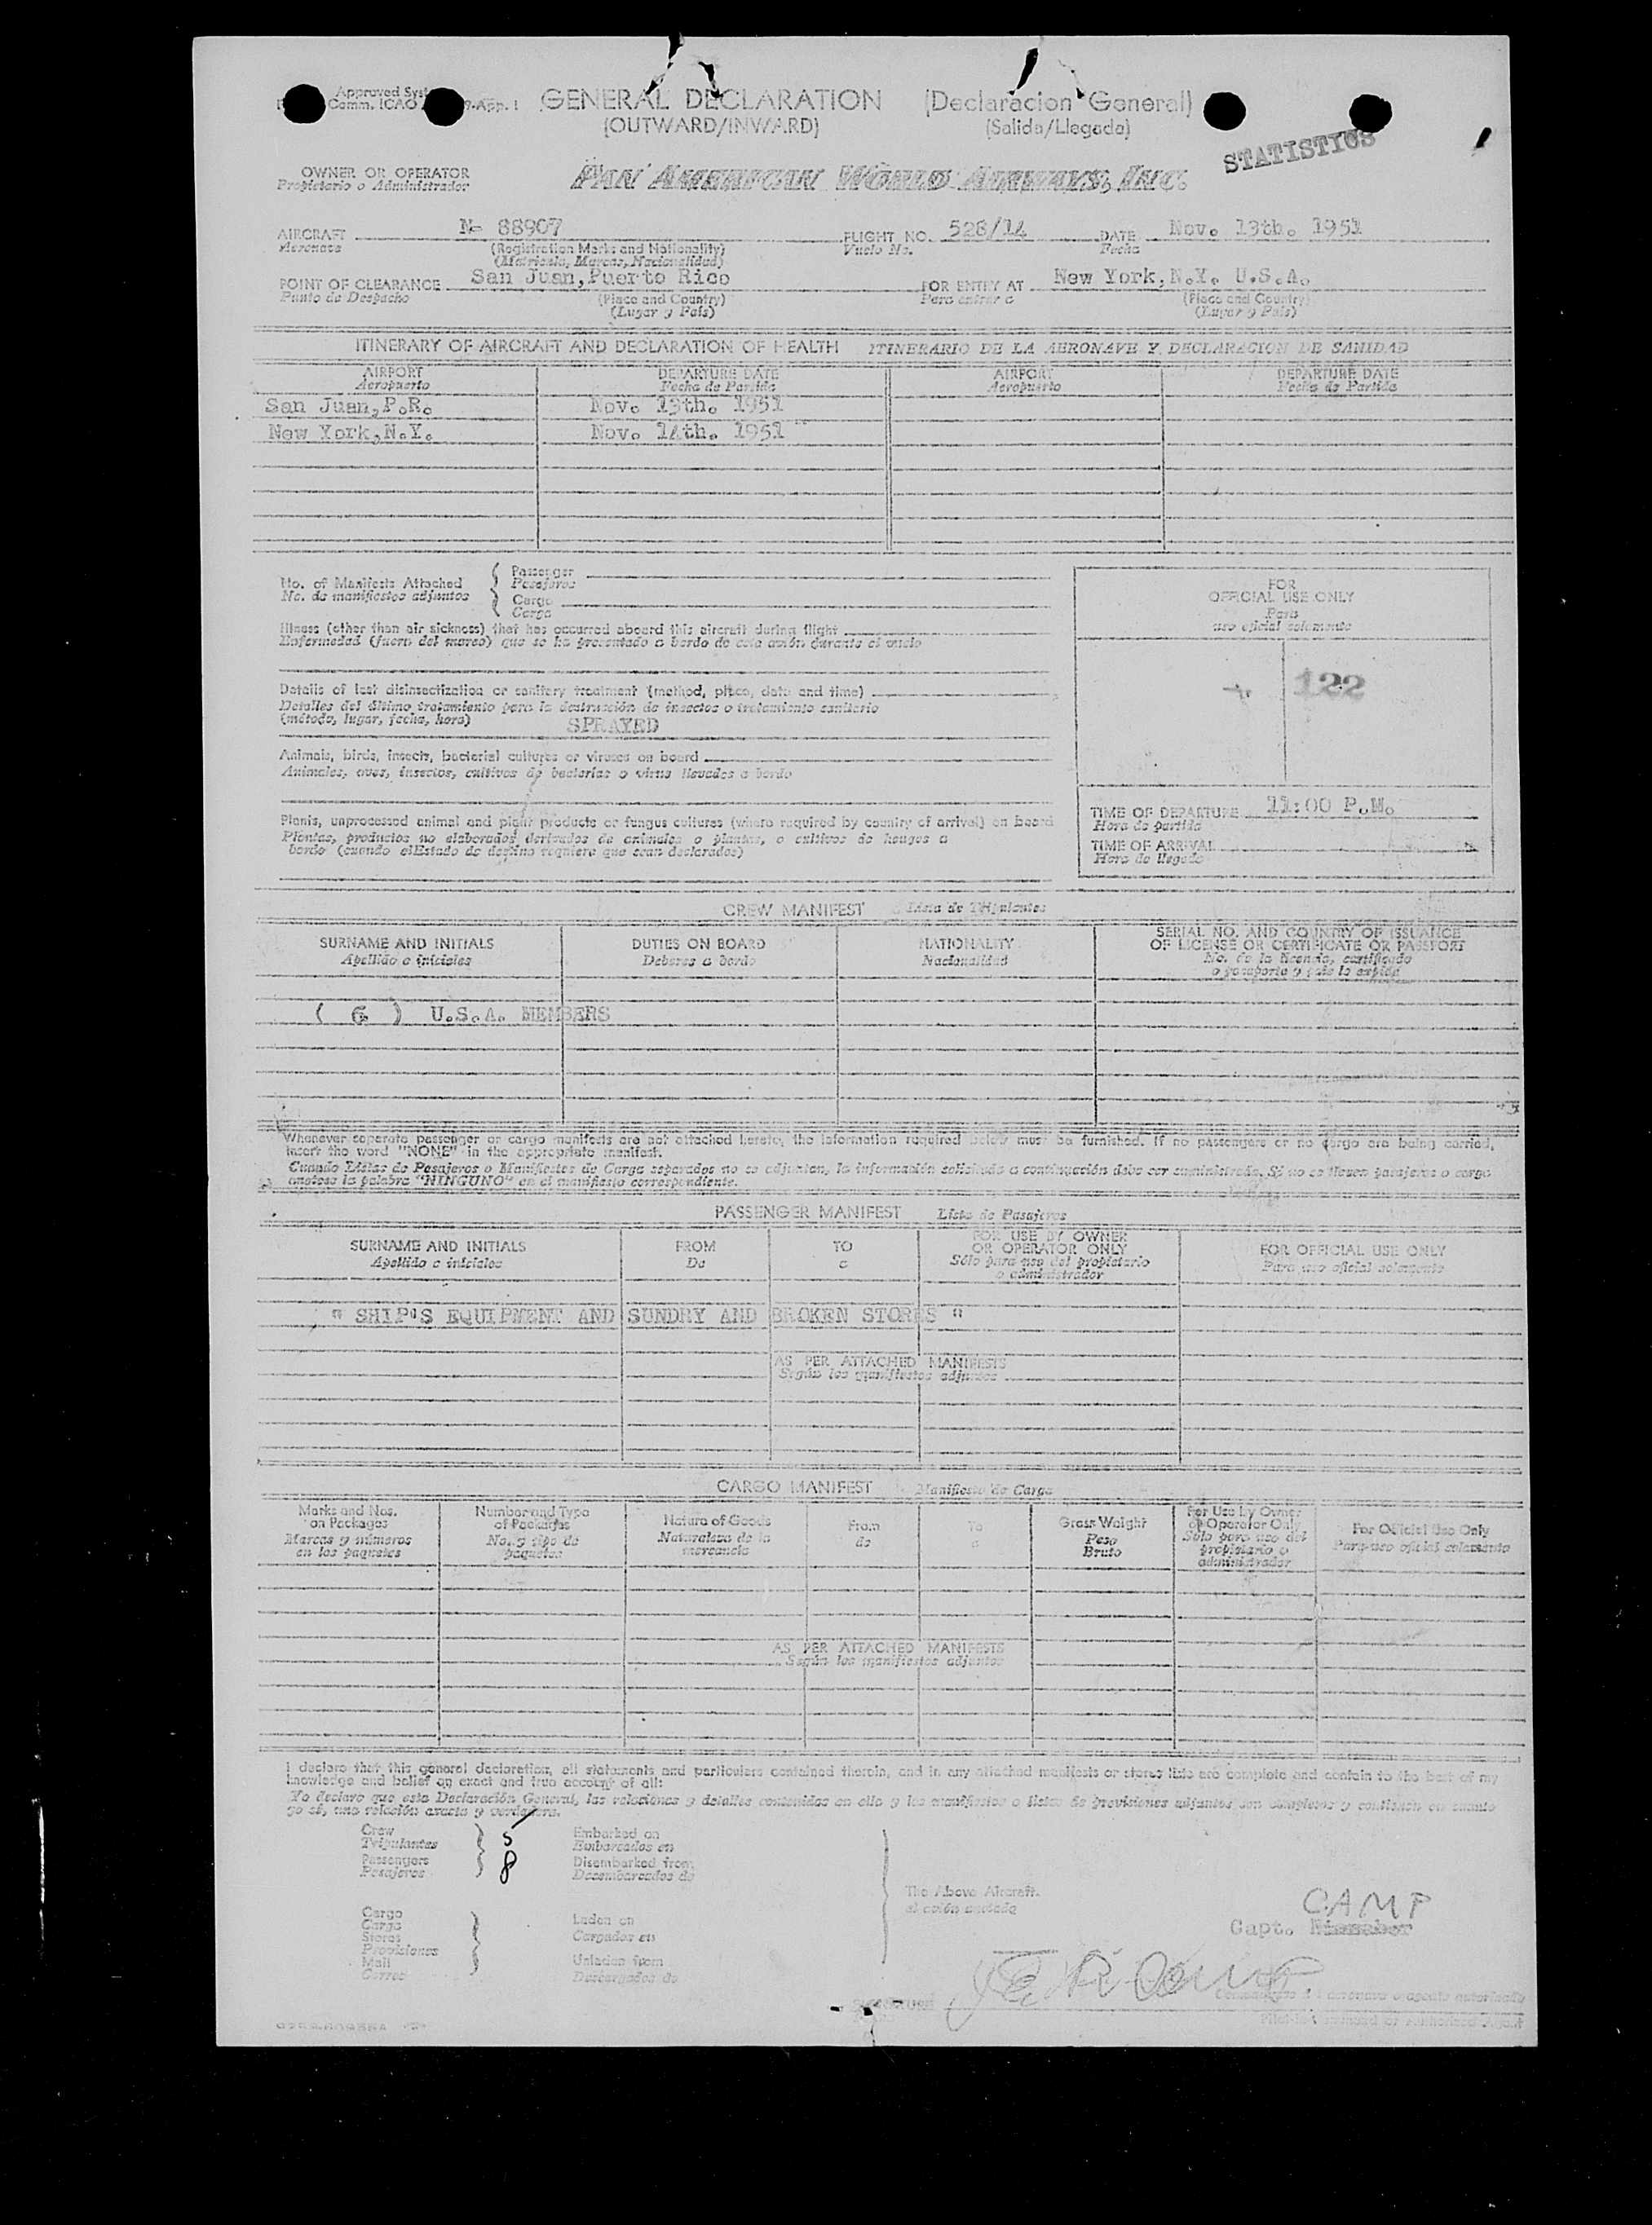 Approved
Comm. ICAO 9-App. 1
GENERAL DECLARATION (Declaracion General)
(OUTWARD/INWARD) (Salida/Llegada)
STATISTICS
OWNER OR OPERATOR
Propietario o Administrador
PAN AMERICAN WORLD AIRWAYS, INC.
AIRCRAFT N- 88907 FLIGHT NO. 528/14 DATE Nov. 13th. 1951
Aeronave (Registration Marks and Nationality) Vuelo No. Fecha
(Matricula, Marcas, Nacionalidad)
POINT OF CLEARANCE San Juan, Puerto Rico FOR ENTRY AT New York, N.Y. U.S.A.
Punto de Despacho (Place and Country) Para entrar a (Place and Country)
(Lugar y País) (Lugar y País)
ITINERARY OF AIRCRAFT AND DECLARATION OF HEALTH ITINERARIO DE LA AERONAVE Y DECLARACION DE SANIDAD
AIRPORT DEPARTURE DATE AIRPORT DEPARTURE DATE
Aeropuerto Fecha de Partida Aeropuerto Fecha de Partida
San Juan, P.R. Nov. 13th. 1951
New York, N.Y. Nov. 14th. 1951
No. of Manifests Attached
No. de manifiestos adjuntos
Passenger
Pasajeros
Cargo
Carga
Illness (other than air sickness) that has occurred aboard this aircraft during flight
Enfermedad (fuera del mareo) que se ha presentado a bordo de este avión durante el vuelo
Details of last disinsectization or sanitary treatment (method, place, date and time)
Detalles del último tratamiento para la destrucción de insectos o tratamiento sanitario
(método, lugar, fecha, hora) SPRAYED
Animals, birds, insects, bacterial cultures or viruses on board
Animales, aves, insectos, cultivos de bacterias o virus llevados a bordo
Plants, unprocessed animal and plant products or fungus cultures (where required by country of arrival) on board
Plantas, productos no elaborados derivados de animales o plantas, o cultivos de hongos a
bordo (cuando elEstado de destino requiera que sean declarados)
FOR
OFFICIAL USE ONLY
Para
uso oficial solamente
122
TIME OF DEPARTURE 11:00 P.M.
Hora de partida
TIME OF ARRIVAL
Hora de llegada
CREW MANIFEST Lista de Tripulantes
SURNAME AND INITIALS DUTIES ON BOARD NATIONALITY SERIAL NO. AND COUNTRY OF ISSUANCE
OF LICENSE OR CERTIFICATE OR PASSPORT
Apellido e iniciales Deberes a bordo Nacionalidad No. de la licencia, certificado
o pasaporte y país lo expide
( 6 ) U.S.A. MEMBERS
Whenever separate passenger or cargo manifests are not attached hereto, the information required below must be furnished. If no passengers or no cargo are being carried,
insert the word "NONE" in the appropriate manifest.
Cuando Listas de Pasajeros o Manifiestos de Carga separados no se adjuntan, la información solicitada a continuación debe ser suministrada. Si no se llevan pasajeros o carga
anótese la palabra "NINGUNO" en el manifiesto correspondiente.
PASSENGER MANIFEST Lista de Pasajeros
SURNAME AND INITIALS FROM TO FOR USE BY OWNER
OR OPERATOR ONLY FOR OFFICIAL USE ONLY
Apellido e iniciales De a Sólo para uso del propietario
o administrador Para uso oficial solamente
" SHIP'S EQUIPMENT AND SUNDRY AND BROKEN STORES "
AS PER ATTACHED MANIFESTS
Según los manifiestos adjuntos
CARGO MANIFEST Manifiesto de Carga
Marks and Nos.
on Packages
Marcas y números
en los paquetes
Number and Type
of Packages
No. y tipo de
paquetes
Nature of Goods
Naturaleza de la
mercancía
From
de
To
a
Gross Weight
Peso
Bruto
For Use by Owner
or Operator Only
Sólo para uso del
propietario o
administrador
For Official Use Only
Para uso oficial solamente
AS PER ATTACHED MANIFESTS
Según los manifiestos adjuntos
I declare that this general declaration, all statements and particulars contained therein, and in any attached manifests or stores lists are complete and contain to the best of my
knowledge and belief an exact and true account of all:
Yo declaro que esta Declaración General, las relaciones y detalles contenidos en ella y los manifiestos o listas de provisiones adjuntos son completos y contienen en cuanto
yo sé, una relación exacta y verdadera.
Crew 5 Embarked on
Tripulantes Embarcados en
Passengers 8 Disembarked from
Pasajeros Desembarcados de
Cargo
Carga
Stores
Provisiones
Mail
Correo
Laden on
Cargados en
Unladen from
Descargados de
The Above Aircraft.
el avión
CAMP
Capt.